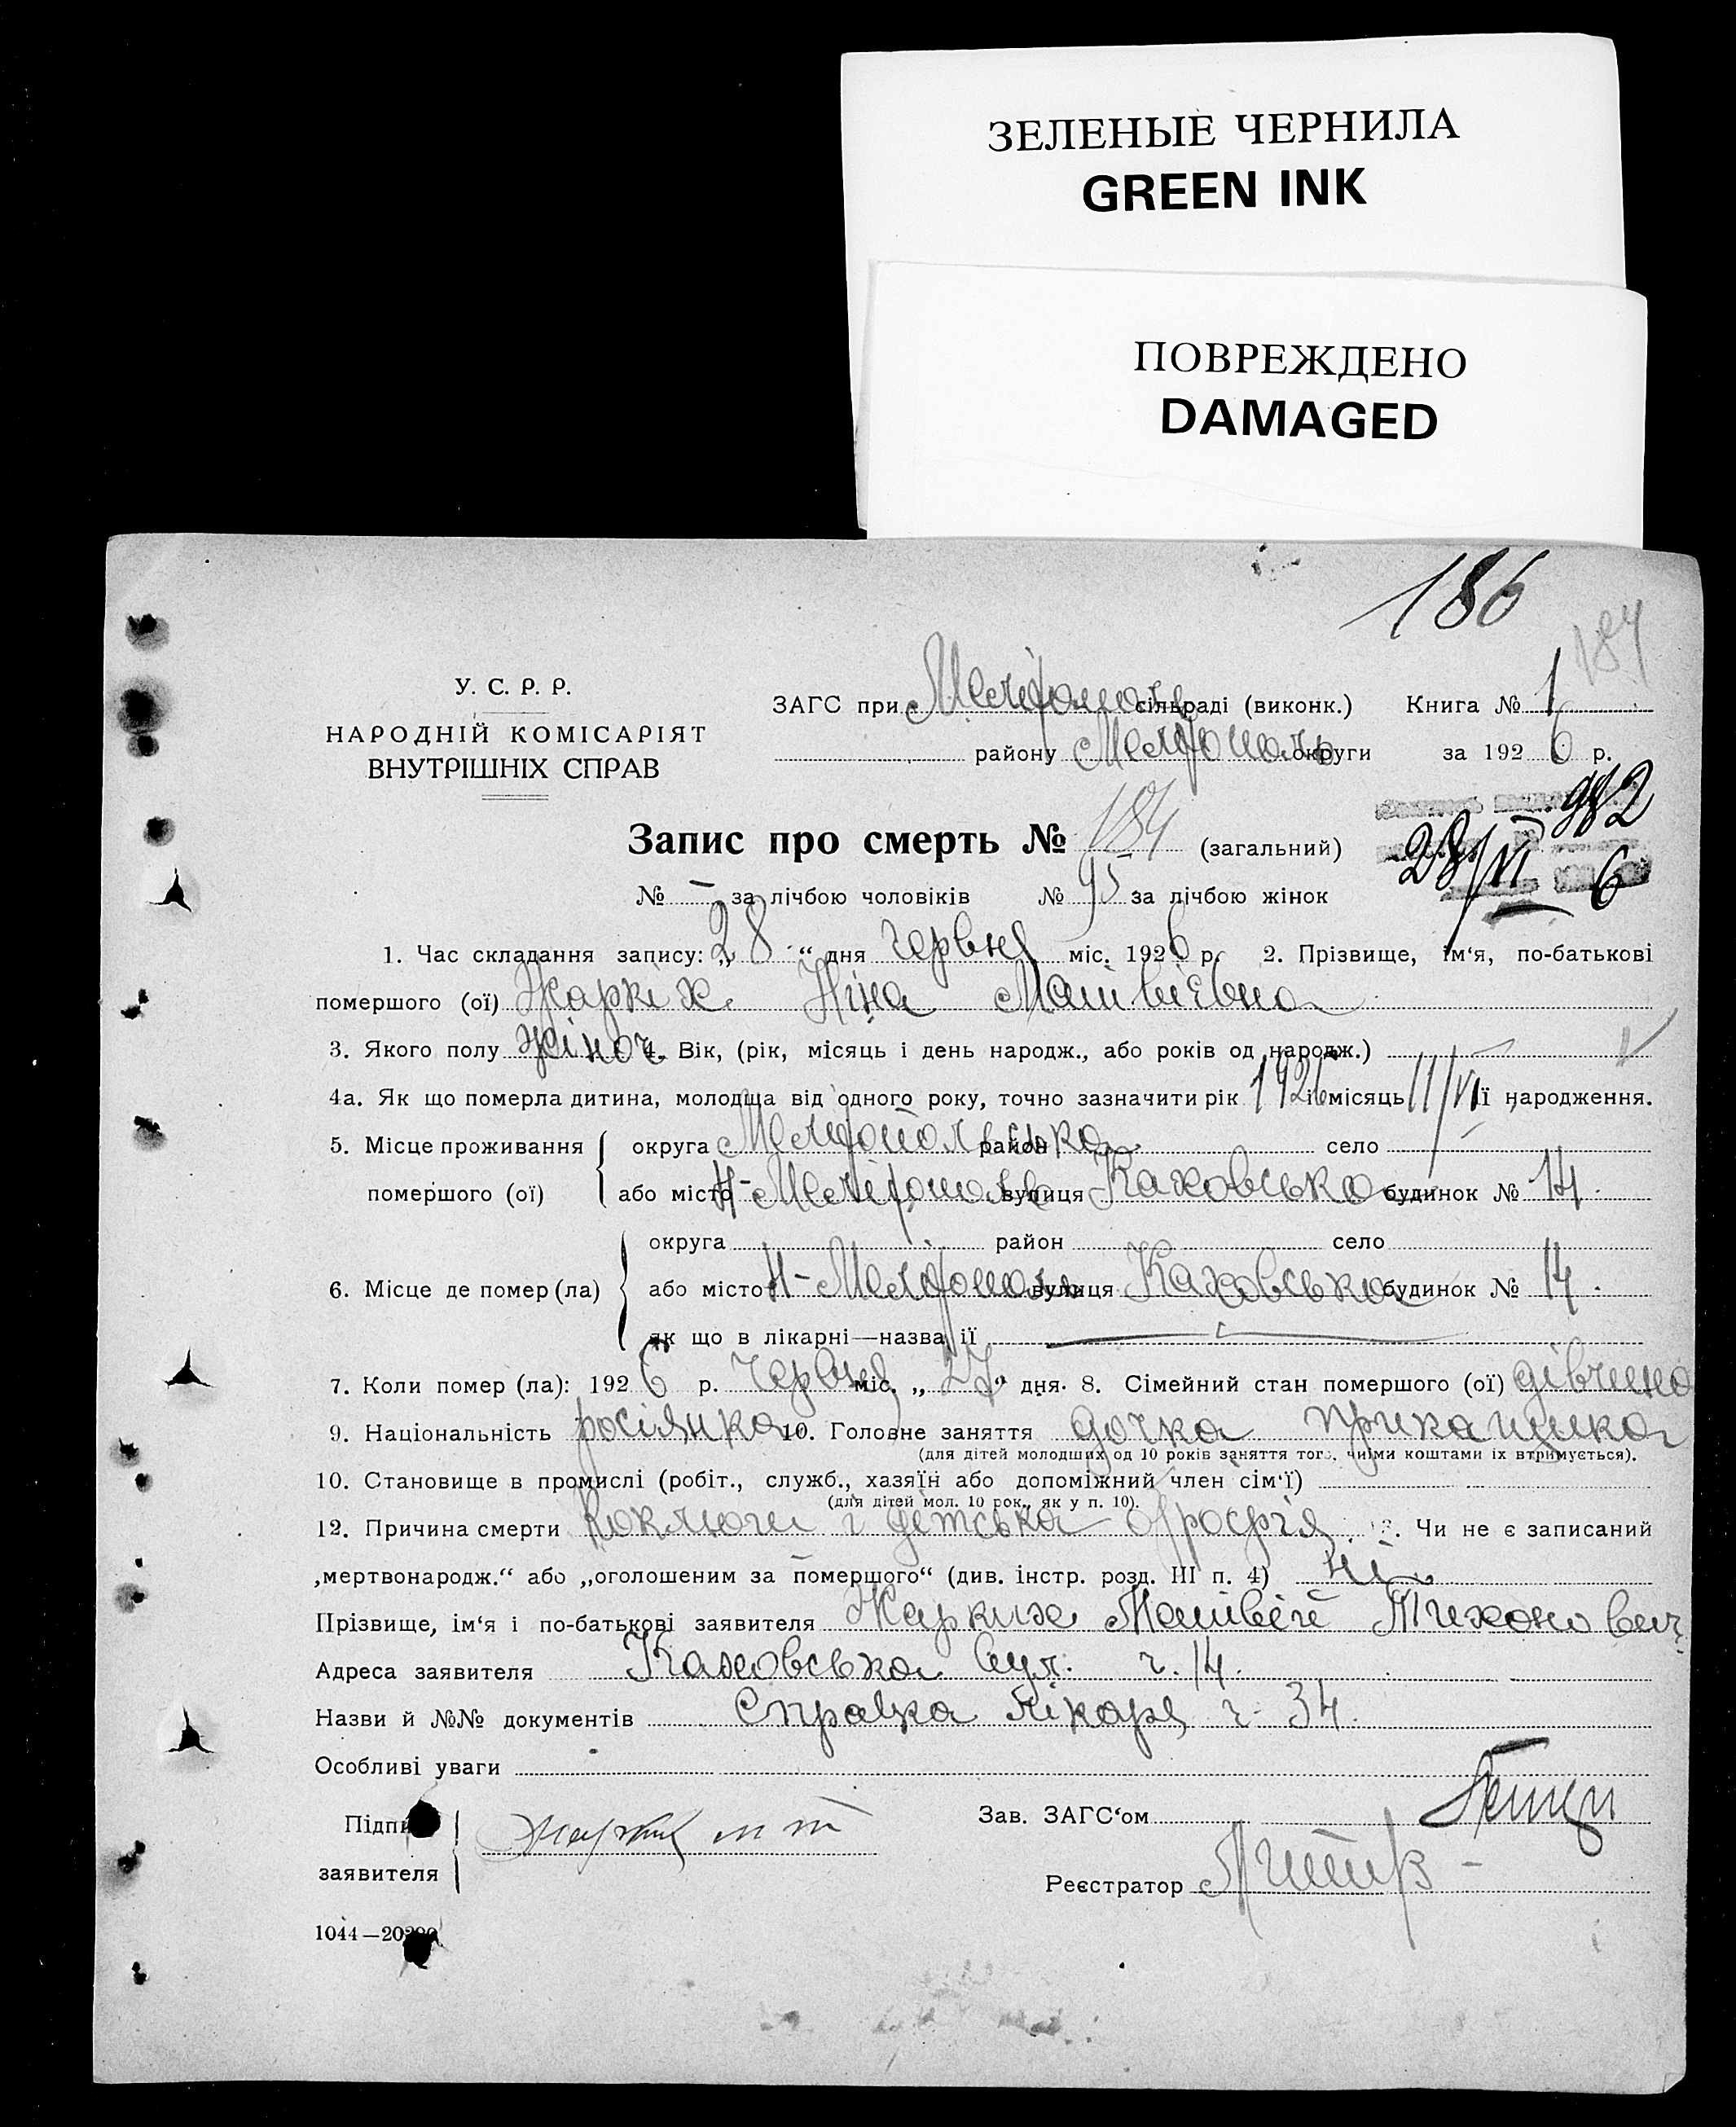 ЗЕЛЕНЫЕ ЧЕРНИЛА
GREEN INK
ПОВРЕЖДЕНО
DAMAGED
186
184
У. С. Р. Р.
НАРОДНІЙ КОМІСАРІЯТ
ВНУТРІШНІХ СПРАВ
ЗАГС при Мелітополь сільраді (виконк.) Книга № 1
району Мелітополь округи за 1926 р.
982
28/VI 6
Запис про смерть № 184 (загальний)
№ — за лічбою чоловіків № 95 за лічбою жінок
1. Час складання запису: „28“ дня червня міс. 1926 р. 2. Прізвище, ім‘я, по-батькові
помершого (ої) Жаркіх Ніна Матвієвна
3. Якого полу жіноч. 4. Вік, (рік, місяць і день народж., або років од народж.)
4а. Як що померла дитина, молодща від одного року, точно зазначити рік 1926 і місяць 11/VI її народження.
5. Місце проживання округа Мелітопольська район село
помершого (ої) або місто Н-Мелітополь вулиця Каховська будинок № 14.
округа район село
6. Місце де помер (ла) або місто Н-Мелітополь вулиця Каховська будинок № 14.
як що в лікарні—назва її
7. Коли помер (ла): 1926 р. червня міс. „27“ дня. 8. Сімейний стан помершого (ої) дівчина
9. Національність росіянка 10. Головне заняття дочка прикащика
(для дітей молодших од 10 років заняття того, чиїми коштами їх втримується).
10. Становище в промислі (робіт., служб., хазяїн або допоміжний член сім‘ї)
(для дітей мол. 10 рок., як у п. 10).
12. Причина смерти Коклюш і дітська атрофія 13. Чи не є записаний
„мертвонародж.“ або „оголошеним за помершого“ (див. інстр. розд. III п. 4) ні
Прізвище, ім‘я і по-батькові заявителя Жарких Матвій Тихонович
Адреса заявителя Каховська вул. ч. 14.
Назви й №№ документів Справка лікаря ч. 34.
Особливі уваги
Підпи Зав. ЗАГС‘ом
заявителя Реєстратор
1044—20